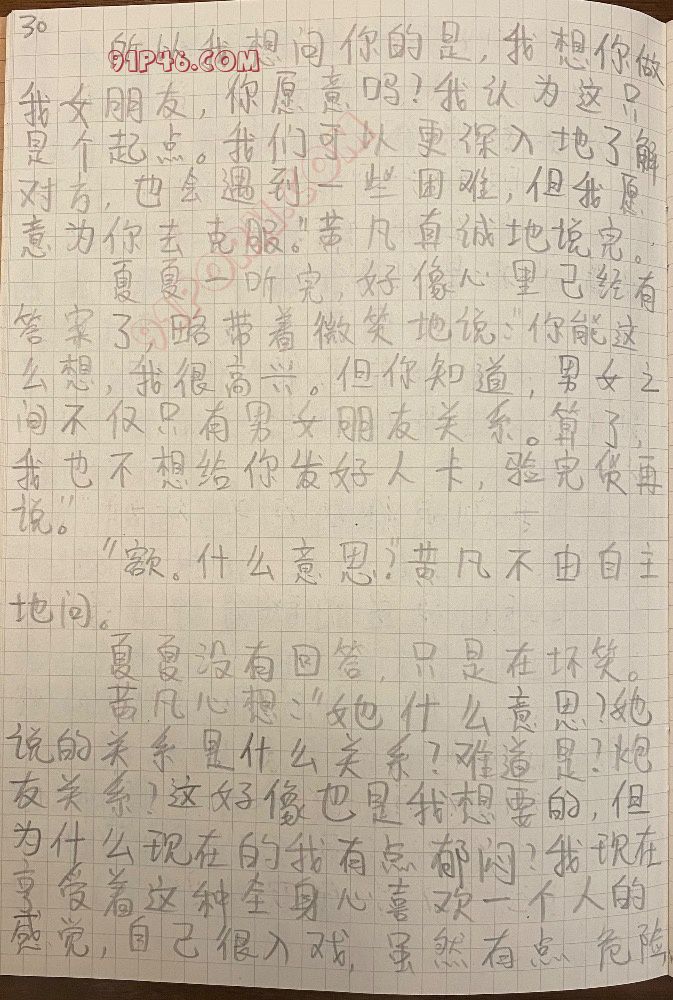 30
所以我想问你的是，我想你做
91P46.COM
我女朋友，你愿意吗？我认为这只
是个起点。我们可以更深入地了解
对方，也会遇到一些困难，但我愿
意为你去克服。"黄凡真诚地说完。
夏夏一听完，好像心里已经有
答案了，略带着微笑地说："你能这
么想，我很高兴。但你知道，男女之
间不仅只有男女朋友关系。算了，
我也不想给你发好人卡，验完货再
说。"
"额。什么意思？"黄凡不由自主
地问。
夏夏没有回答，只是在坏笑。
黄凡心想："她什么意思？她
说的关系是什么关系？难道是？炮
友关系？这好像也是我想要的，但
为什么现在的我有点郁闷？我现在
享受着这种全身心喜欢一个人的
感觉，自己很入戏，虽然有点危险